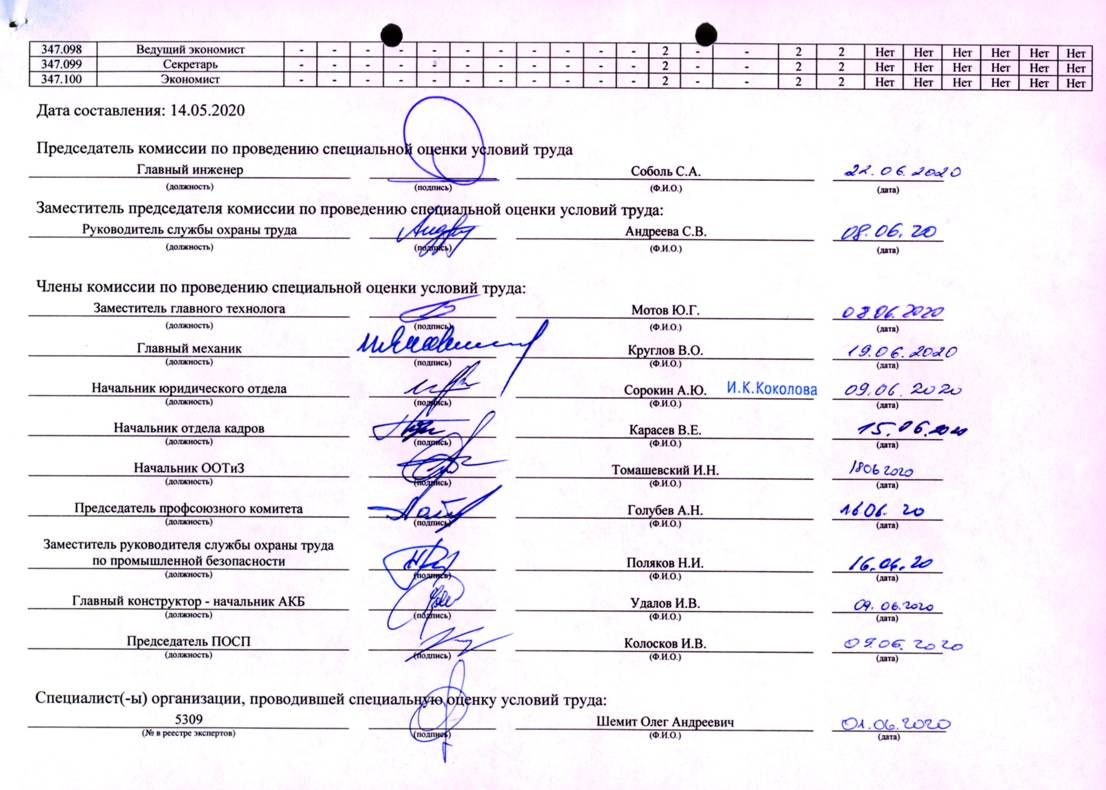 347.098 Ведущий экономист - - - - - - - - - - - 2 - - 2 2 Нет Нет Нет Нет Нет Нет
347.099 Секретарь - - - - - - - - - - - 2 - - 2 2 Нет Нет Нет Нет Нет Нет
347.100 Экономист - - - - - - - - - - - 2 - - 2 2 Нет Нет Нет Нет Нет Нет
Дата составления: 14.05.2020
Председатель комиссии по проведению специальной оценки условий труда
Главный инженер Соболь С.А. 22.06.2020
(должность) (подпись) (Ф.И.О.) (дата)
Заместитель председателя комиссии по проведению специальной оценки условий труда:
Руководитель службы охраны труда Андреева С.В. 08.06.20
(должность) (подпись) (Ф.И.О.) (дата)
Члены комиссии по проведению специальной оценки условий труда:
Заместитель главного технолога Мотов Ю.Г. 08.06.2020
(должность) (подпись) (Ф.И.О.) (дата)
Главный механик Круглов В.О. 19.06.2020
(должность) (подпись) (Ф.И.О.) (дата)
Начальник юридического отдела Сорокин А.Ю. И.К.Коколова 09.06.2020
(должность) (подпись) (Ф.И.О.) (дата)
Начальник отдела кадров Карасев В.Е. 15.06.2020
(должность) (подпись) (Ф.И.О.) (дата)
Начальник ООТиЗ Томашевский И.Н. 1806 2020
(должность) (подпись) (Ф.И.О.) (дата)
Председатель профсоюзного комитета Голубев А.Н. 16 06. 20
(должность) (подпись) (Ф.И.О.) (дата)
Заместитель руководителя службы охраны труда
по промышленной безопасности Поляков Н.И. 16.06.20
(должность) (подпись) (Ф.И.О.) (дата)
Главный конструктор - начальник АКБ Удалов И.В. 09.06.2020
(должность) (подпись) (Ф.И.О.) (дата)
Председатель ПОСП Колосков И.В. 09.06.2020
(должность) (подпись) (Ф.И.О.) (дата)
Специалист(-ы) организации, проводившей специальную оценку условий труда:
5309 Шемит Олег Андреевич 01.06.2020
(№ в реестре экспертов) (подпись) (Ф.И.О.) (дата)